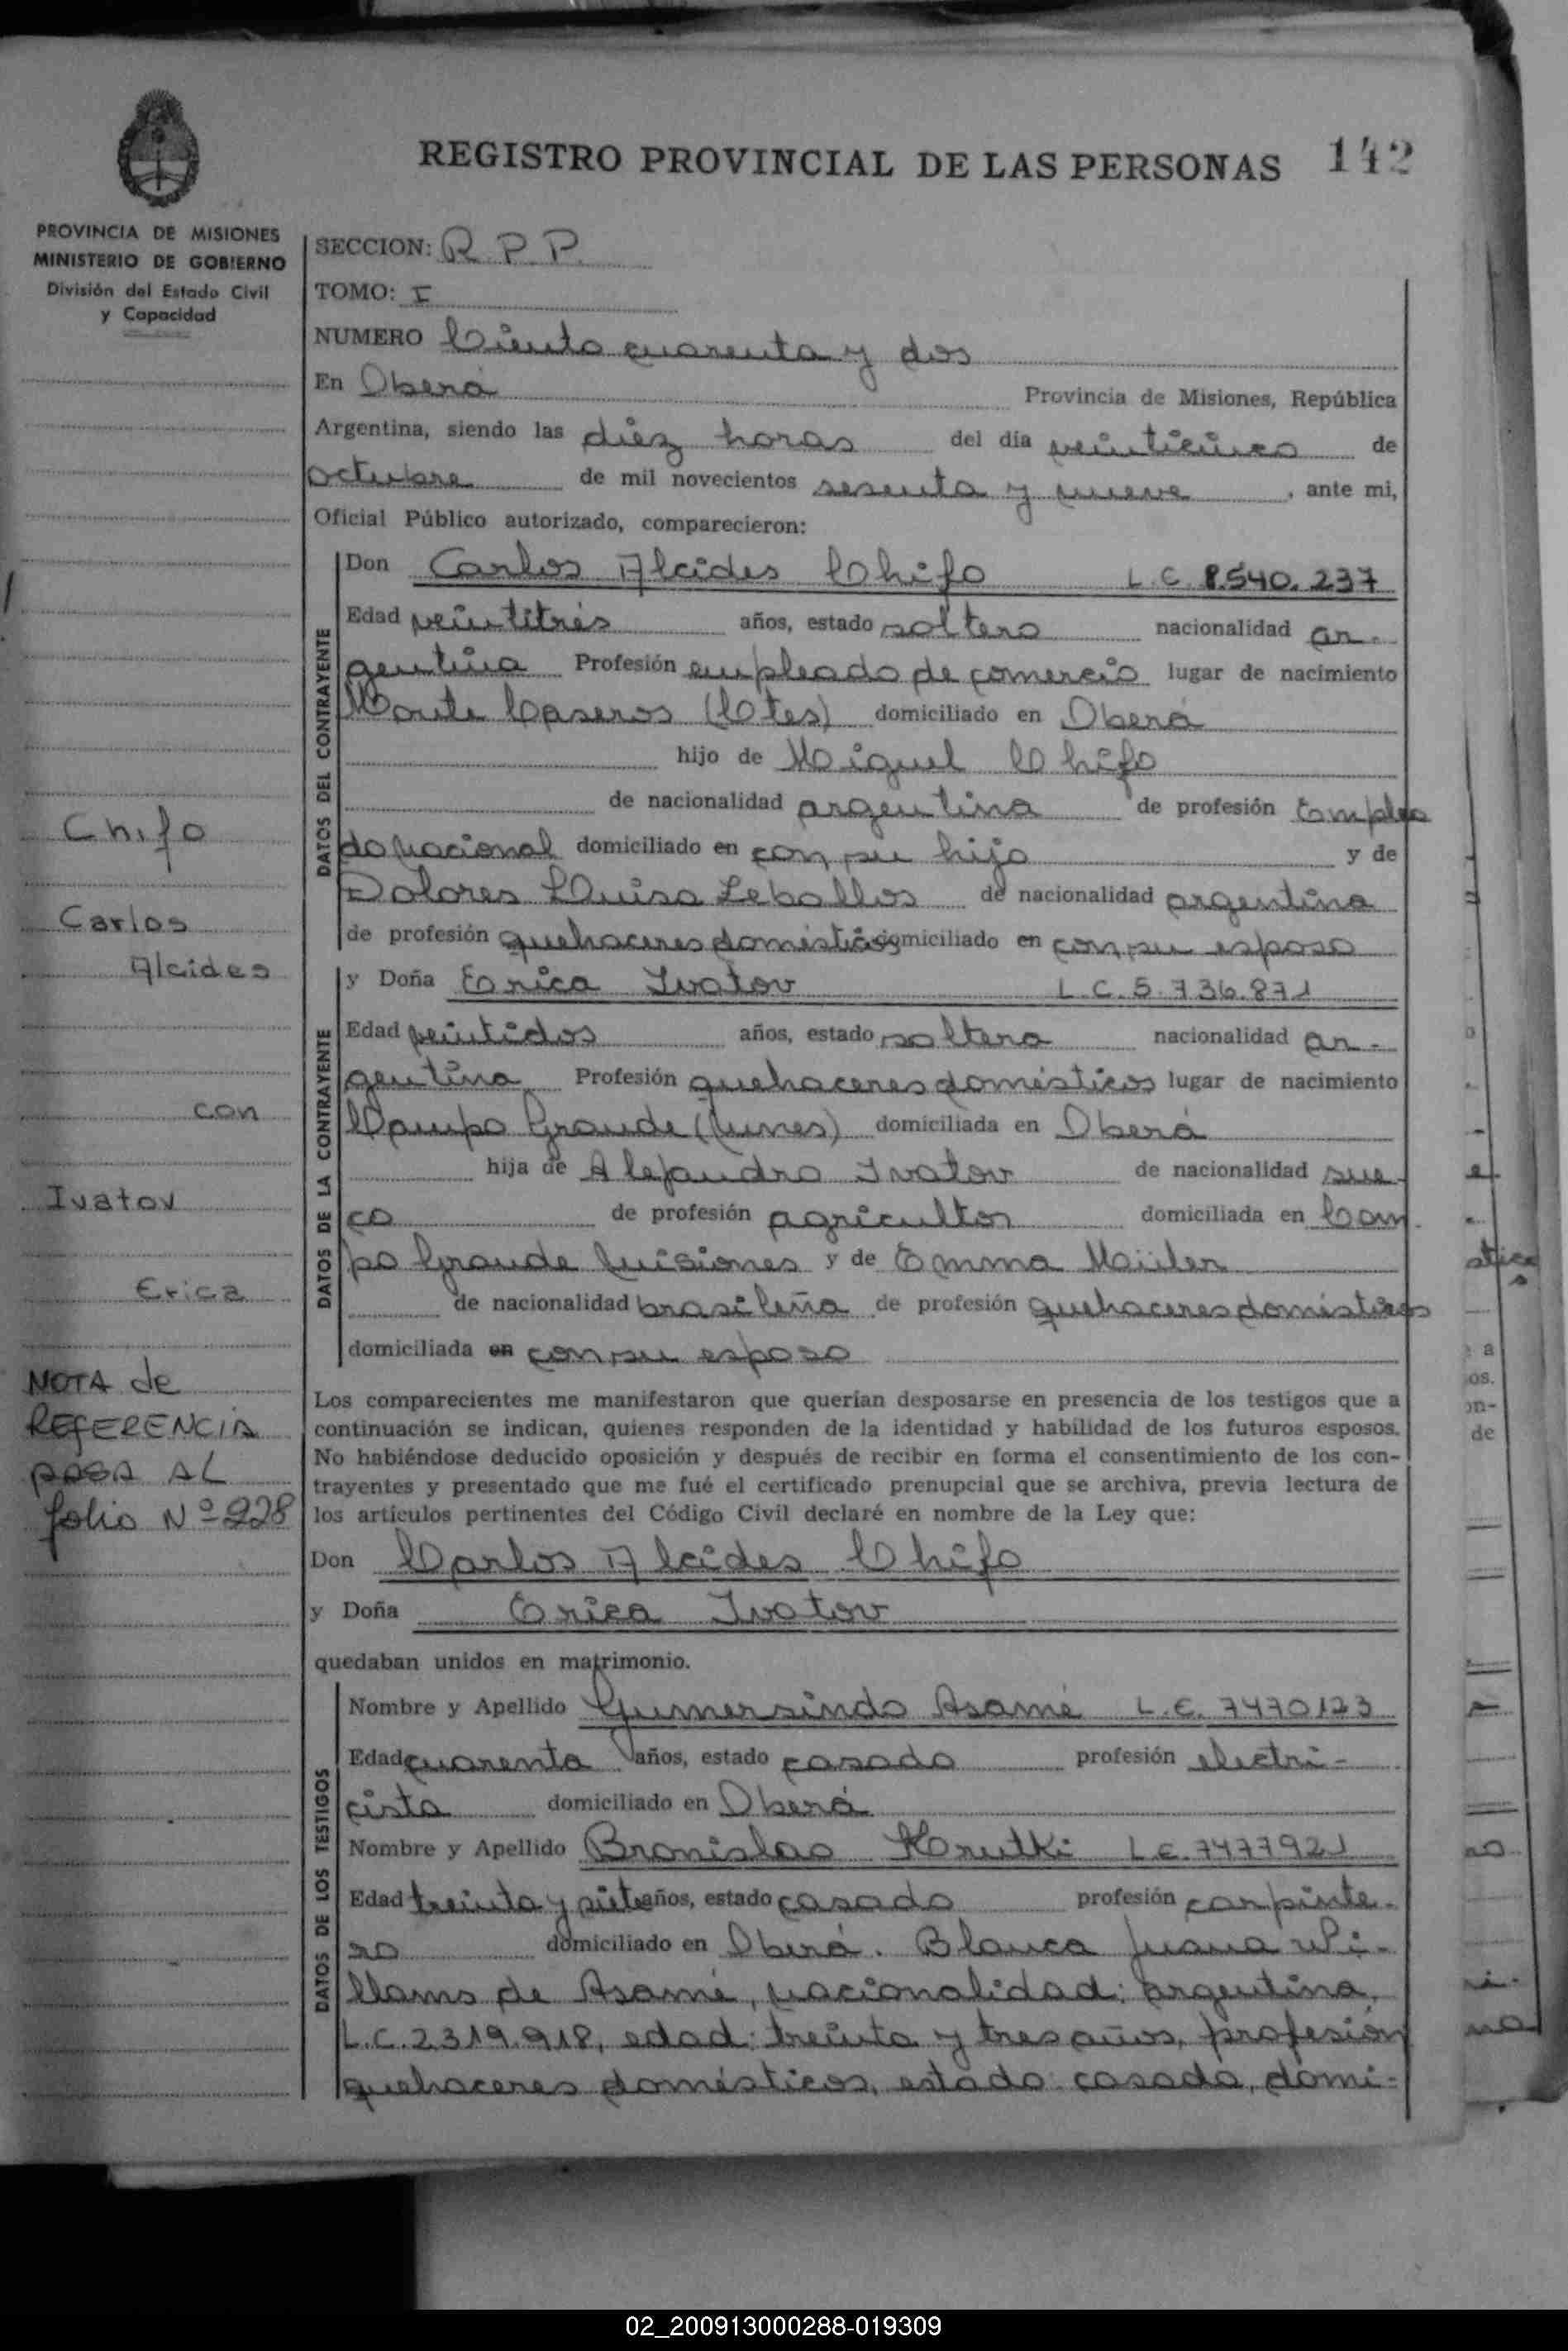 REGISTRO PROVINCIAL DE LAS PERSONAS 142
PROVINCIA DE MISIONES
MINISTERIO DE GOBIERNO
División del Estado Civil
y Capacidad
SECCION: R. P. P.
TOMO: I
NUMERO Ciento cuarenta y dos
En Oberá Provincia de Misiones, República
Argentina, siendo las diez horas del día veinticinco de
octubre de mil novecientos sesenta y nueve, ante mi,
Oficial Público autorizado, comparecieron:
DATOS DEL CONTRAYENTE
Don Carlos Alcides Chifo L.C. 8.540.237
Edad veintitrés años, estado soltero nacionalidad ar-
gentina Profesión empleado de comercio lugar de nacimiento
Monte Caseros (Ctes) domiciliado en Oberá
hijo de Miguel Chifo
de nacionalidad argentina de profesión Emplea
do nacional domiciliado en con su hijo y de
Dolores Luisa Zeballos de nacionalidad argentina
de profesión quehaceres domésticos domiciliado en con su esposo
DATOS DE LA CONTRAYENTE
y Doña Erica Ivatov L.C. 5.736.871
Edad veintidos años, estado soltera nacionalidad ar-
gentina Profesión quehaceres domésticos lugar de nacimiento
Campo Grande (Mnes) domiciliada en Oberá
hija de Alejandro Ivatov de nacionalidad sue-
co de profesión agricultor domiciliada en Cam-
po Grande Misiones y de Emma Müler
de nacionalidad brasileña de profesión quehaceres domésticos
domiciliada en con su esposo
Los comparecientes me manifestaron que querían desposarse en presencia de los testigos que a
continuación se indican, quienes responden de la identidad y habilidad de los futuros esposos.
No habiéndose deducido oposición y después de recibir en forma el consentimiento de los con-
trayentes y presentado que me fué el certificado prenupcial que se archiva, previa lectura de
los artículos pertinentes del Código Civil declaré en nombre de la Ley que:
Don Carlos Alcides Chifo
y Doña Erica Ivatov
quedaban unidos en matrimonio.
DATOS DE LOS TESTIGOS
Nombre y Apellido Gumersindo Asamé L.E. 7470123
Edad cuarenta años, estado casado profesión electri-
cista domiciliado en Oberá
Nombre y Apellido Bronislao Krutki L.E. 7477921
Edad treinta y siete años, estado casado profesión carpinte-
ro domiciliado en Oberá. Blanca Juana Wi-
llams de Asamé, nacionalidad: argentina,
L.C. 2.319.918, edad: treinta y tres años, profesión
quehaceres domésticos, estado: casada, domi-
Chifo
Carlos
Alcides
con
Ivatov
Erica
NOTA de
REFERENCIA
PASA AL
folio Nº 228
02_200913000288-019309